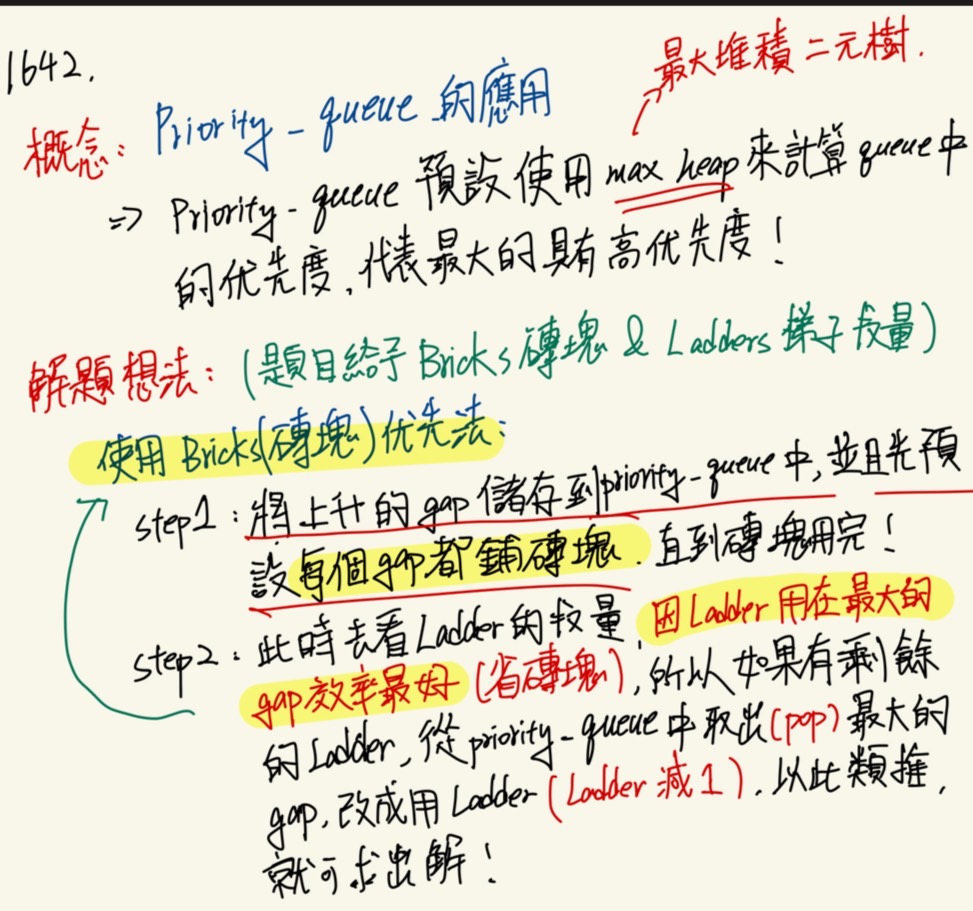 1642.
最大堆積二元樹.
概念: Priority-queue 的應用
⇒ Priority-queue 預設使用 max heap 來計算 queue 中
的优先度, 代表最大的具有高优先度!
解題想法: (題目給予 Bricks 磚塊 & Ladders 梯子數量)
使用 Bricks(磚塊)优先法:
step1: 將上升的 gap 儲存到priority-queue 中, 並且先預
設每個gap都鋪磚塊. 直到磚塊用完!
step2: 此時去看Ladder的數量, 因Ladder用在最大的
gap效率最好 (省磚塊), 所以如果有剩餘
的Ladder, 從priority-queue中取出(pop)最大的
gap, 改成用Ladder (Ladder 減1). 以此類推,
就可求出解!